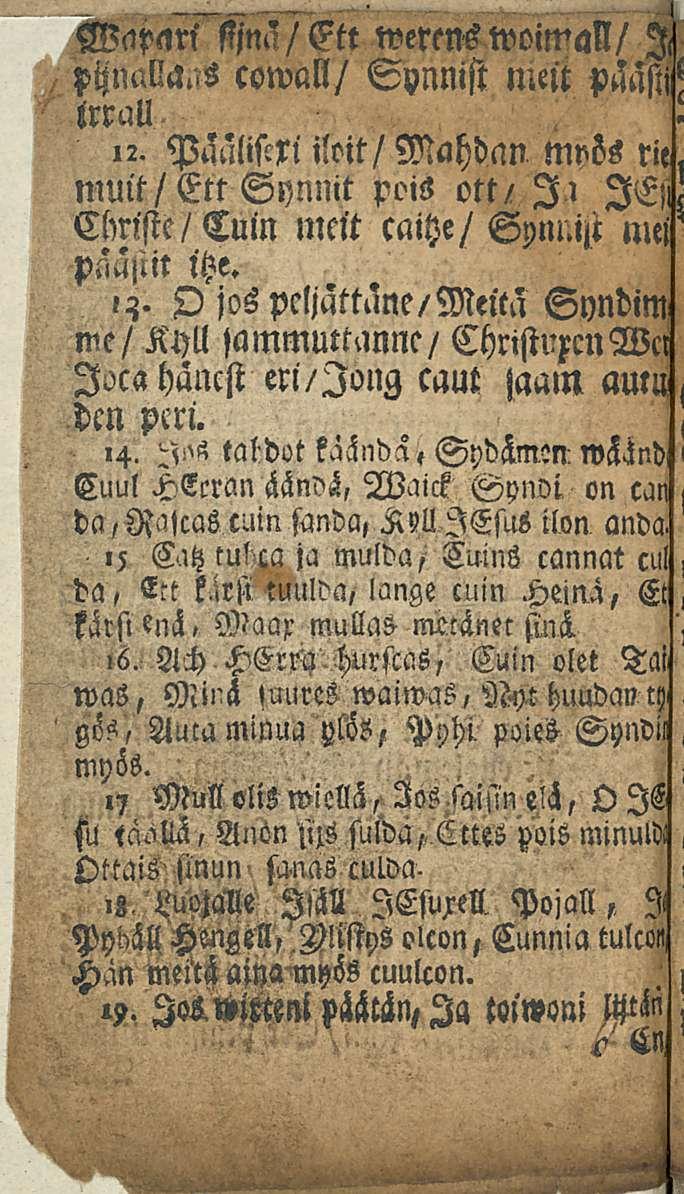 Wapari sijnä/ Ett werens woimall/ J
pijnallans cowall/ Synnist meit päästi
irrall
12. Päälisexi iloit/ Mahdan myös rie
muit/ Ett Synnit pois ott/ Ja JEs
Christe/ Cuin meit caitze/ Synnist mei
päästit itze.
13. O jos peljättäne/ Meitä Syndim
me/ Kyll sammuttanne/ Christuxen Wer
Joca hänest eri/ Jong caut saam autu
den peri.
14. Jos tahdot käändä, Sydämen wäänd
Cuul HErran äändä, Waick Syndi on can
da, Rascas cuin sanda, Kyll JEsus ilon anda.
15 Catz tuhca ja mulda, Cuins cannat cul
da, Ett kärsi tuulda, lange cuin Heinä, Et
kärsi enä, Maax mullas metänet sinä
16. Ach HErra hurscas, Cuin olet Tai
was, Minä suures waiwas, Nyt huudan ty
gös, Auta minua ylös, Pyhi poies Syndin
myös.
17 Mull olis wiellä, Jos saisin elä, O JE
su täällä, Anon sixs sulda, Ettes pois minulda
Ottais sinun sanas culda.
18. Luojalle Isäll JEsuxell Pojall, J
Pyhäll Hengell, Ylistys olcon, Cunnia tulcon
Hän meitä aina myös cuulcon.
19. Jos wirteni päätän, Ja toiwoni
En